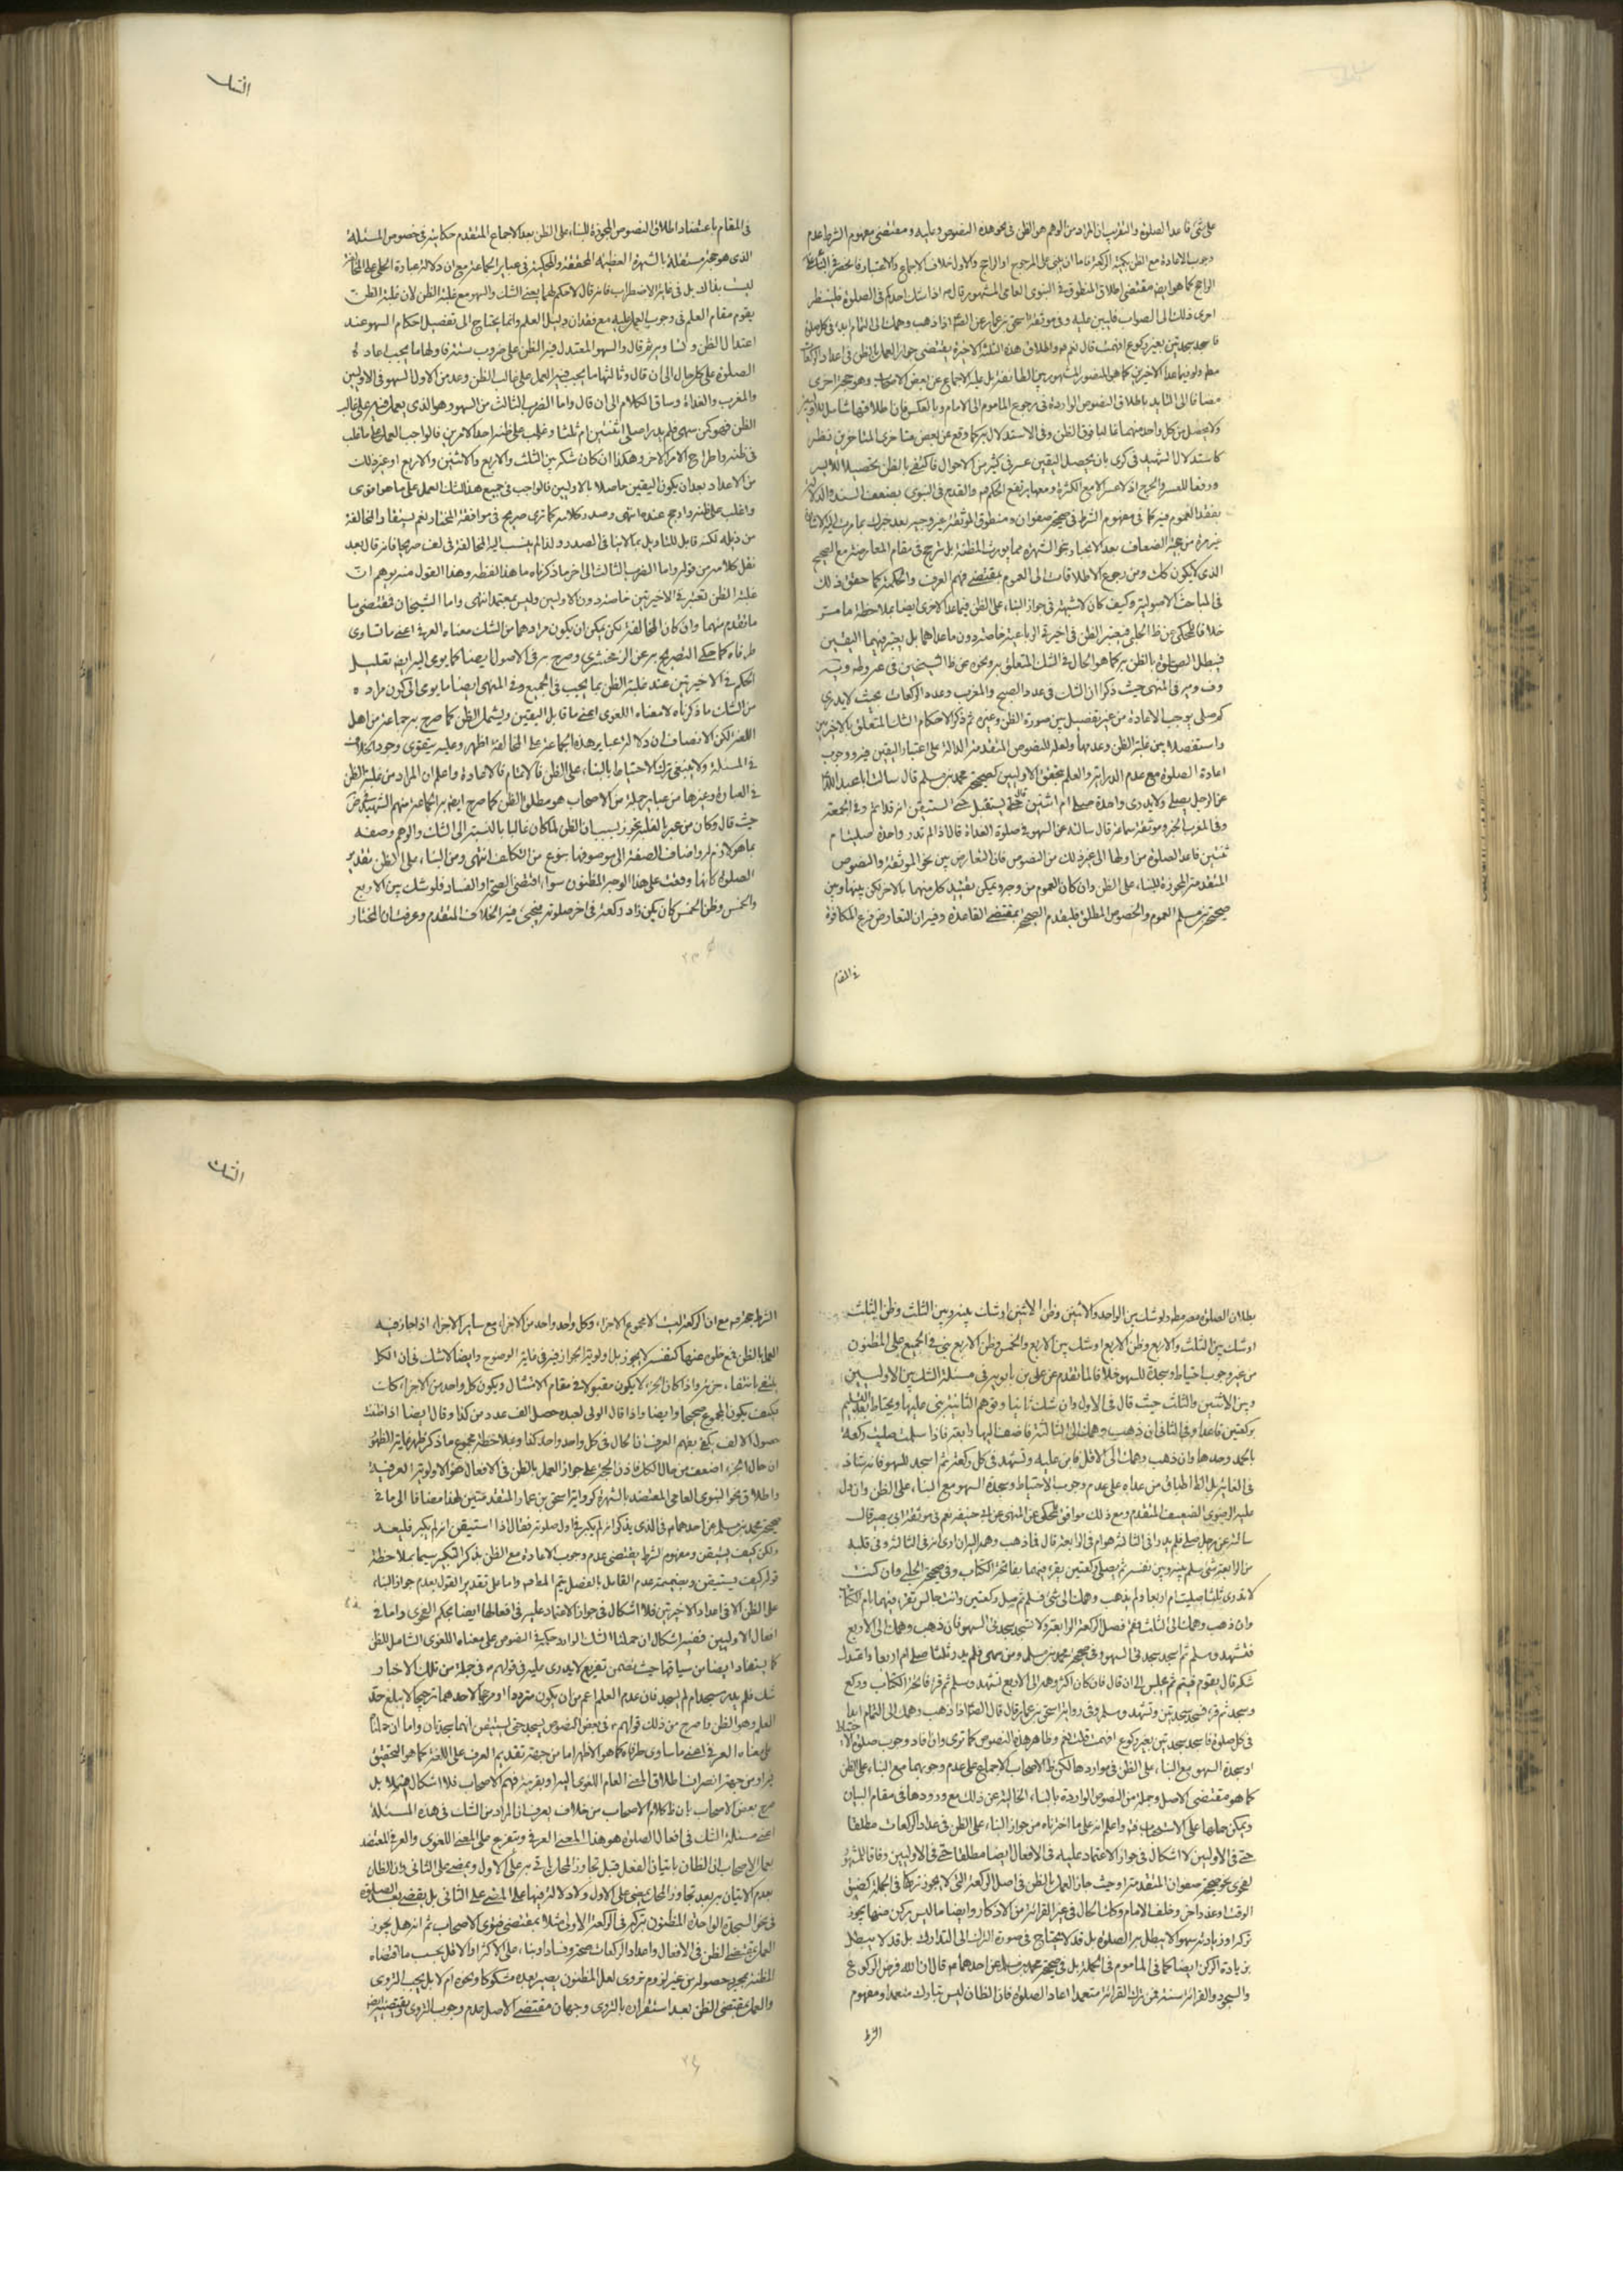 الشك
على شئ قاعد الصلوة والتقريب ان المراد من الوهم هو الظن في نحو هذه النصوص وعليه ومقتضى مفهوم الشرط عدم
وجوب الاعادة مع الظن بكمية الركعة فاما ان يبنى على المرجوح او الراجح والاول خلاف الاجماع والاعتبار فانحصر في الثاني
الراجح كما هو ايضا مقتضى اطلاق المنطوق في النبوى العامى المشهور قال اذا شك احدكم في الصلوة فلينظر
احرى ذلك الى الصواب فليبن عليه وفى موثقة اسحق بن عمار عن الصّ اذا ذهب وهمك الى التمام ابدا في كل صلوة
فاسجد سجدتين بغير ركوع افهمت قال نعم واطلاق هذه الثلثة الاخيرة يقتضى جواز العمل بالظن في اعداد الركعات
مطلقا ولو فيما عدا الاخيرتين كما هو المنصور المشهور بين الطائفة بل عليه الاجماع عن بعض الاصحاب وهو حجة اخرى
مضافا الى التاييد باطلاق النصوص الواردة في رجوع الماموم الى الامام وبالعكس فان اطلاقها شامل للاوليين
ولا يحصل من كل واحد منهما غالبا فوق الظن وفى الاستدلال بغيره كما وقع عن بعض متاخرى المتاخرين نظر
كاستدلال الشهيد في كرى بان تحصيل اليقين عسر في كثير من الاحوال فاكتفى بالظن تحصيلا لليسر
ودفعا للعسر والحرج اذ لا عسر الا مع الكثرة ومعها يرتفع الحكم والقدح في النبوى بضعف السند والدلالة
بفقد العموم فيه كما في مفهوم الشرط في صحيحة صفوان ومنطوق الموثقة غير وجيه بعد
الذى لا يكون كذلك ومن رجوع الاطلاقات الى العموم بمقتضى فهم العرف والحكمة كما حقق ذلك
في المباحث الاصولية وكيف كان لا شبهة في جواز البناء على الظن فيما عدا الاخرى ايضا بملاحظة ما مر
خلافا للمحكى عن ظ الحلى فيعتبر الظن في اخيرتي الرباعية خاصة دون ما عداهما بل يعتبر فيهما اليقين
فيبطل الصلوة بالظن به كما هو الحال في الشك المتعلق به ونحوه عن ظ الشيخين في
في المنتهى حيث ذكرا ان الشك في عدد الصبح والمغرب وعدد الركعات بحيث لا يدرى
كم صلى يوجب الاعادة من غير تفصيل بين صورة الظن وغيره ثم ذكر الاحكام الشك المتعلق بالاخيرتين
واستفصلا بين غلبة الظن وعدمها ولعله للنصوص المتقدمة الدالة على اعتبار اليقين فيه ووجوب
اعادة الصلوة مع عدم الدراية والعلم بتحقق الاوليين كصحيحة محمد بن مسلم قال سالت ابا عبد الله
عن الرجل يصلى ولا يدرى واحدة صلى ام اثنتين قال يستقبل حتى يستيقن انه قد اتم وفى الجمعة
وفى المغرب الخ وموثقة سماعة قال سالته عن السهو في صلوة الغداة قال اذا لم تدر واحدة صليت ام
ثنتين فاعد الصلوة من اولها الى غير ذلك من النصوص فان التعارض بين نحو الموثقة والنصوص
المتقدمة المجوزة للبناء على الظن وان كان العموم من وجه ويمكن تقييد كل منهما بالاخر لكن بينها وبين
صحيحة بن مسلم العموم والخصوص المطلق فليقدم الصحيحة بمقتضى القاعدة وفيه ان التعارض فرع المكافوة
في المقام
في المقام باعتضاد اطلاق النصوص المجوزة للبناء على الظن بعد الاجماع المتقدم حكايته في خصوص المسئلة
الذى هو حجة مستقلة بالشهرة العظيمة المحققة والمحكية في عباير الجماعة مع ان دلالة عبارة الحلى على المخالفة
ليست بذاك بل في غاية الاضطراب فانه قال لا حكم لهما يعنى الشك والسهو مع غلبة الظن لان غلبة الظن
يقوم مقام العلم في وجوب العمل عليه مع فقدان دليل العلم وانما يحتاج الى تفصيل احكام السهو عند
اعتدال الظن وتساويه ثم قال والسهو المعتدل فيه الظن على ضروب ستة فاولها ما يجب اعادة
الصلوة على كل حال الى ان قال وثالثها ما يجب فيه العمل على غالب الظن وعد من الاول السهو في الاوليين
والمغرب والغداة وساق الكلام الى ان قال واما الضرب الثالث من السهو وهو الذى يعمل فيه على غالب
الظن فهو كمن سهى فلم يدر اصلى اثنتين ام ثلثا وغلب على ظنه احد الامرين فالواجب العمل على ما غلب
في ظنه واطراح الامر الاخر وهكذا ان كان شكه بين الثلث والاربع والاثنين والاربع او غير ذلك
من الاعداد بعد ان يكون اليقين حاصلا بالاوليين فالواجب في جميع هذا الشك العمل على ما هو اقوى
واغلب على ظنه وارجح عنده انتهى وصدر كلامه كما ترى صريح في موافقة المختار نعم يستفاد المخالفة
من ذيله لكنه قابل للتاويل بما لا ينافى الصدر ولذا لم ينسب اليه المخالفة في لف صريحا فانه قال بعد
نقل كلامه من قوله واما الضرب الثالث الى اخر ما ذكرناه ما هذا لفظه وهذا القول منه يوهم ان
غلبة الظن تعتبر في الاخيرتين خاصة دون الاوليين وليس بمعتمد انتهى واما الشيخان فمقتضى ما
ما تقدم منهما وان كان المخالفة لكن يمكن ان يكون مرادهما من الشك معناه العرفى اعنى ما تساوى
طرفاه كما حكى التصريح به عن الزمخشرى وصرح به في الاصول ايضا كما يومى اليه ايضا تعليل
الحكم في الاخيرتين عند غلبة الظن بما يجب في الجميع وفى المنتهى ايضا ما يومى الى كون مراده
من الشك ما ذكرناه لا معناه اللغوى اعنى ما قابل اليقين ويشمل الظن كما صرح به جماعة من اهل
اللغة لكن الانصاف ان دلالة عباير هذه الجماعة على المخالفة اظهر وعليه يتقوى وجود الخلاف
في المسئلة ولا ينبغى ترك الاحتياط بالبناء على الظن فالاتمام فالاعادة واعلم ان المراد من غلبة الظن
في العبارة وغيرها من عباير جملة من الاصحاب هو مطلق الظن كما صرح ايضا به الجماعة منهم الشهيد في ض
حيث قال وكان من عبر بالغلبة تجوز بسبب ان الظن لما كان غالبا بالنسبة الى الشك والوهم وصفه
بما هو لازم له واضاف الصفة الى موصوفها بنوع من التكلف انتهى ومن البناء على الظن تقدير
الصلوة كانها وقعت على هذا الوجه المظنون سواء اقتضى الصحة او الفساد فلو شك بين الاربع
والخمس وظن الخمس كان كمن زاد ركعة في اخر صلوته فيجئ فيه الخلاف المتقدم وعرفت ان المختار
الشك
بطلان الصلوة معه مطلقا ولو شك بين الواحد والاثنين وظن الاثنين او شك بينه وبين الثلث وظن الثلث
او شك بين الثلث والاربع وظن الاربع او شك بين الاربع والخمس وظن الاربع بنى في الجميع على المظنون
من غير وجوب احتياط او سجدة للسهو خلافا لما تقدم عن على بن بابويه في مسئلة الشك بين الاوليين
وبين الاثنين والثلث حيث قال في الاول وان شك ثانيا وتوهم الثانية بنى عليها ويحتاط بعد التسليم
بركعتين قاعدا وفى الثانى ان ذهب وهمك الى الثالثة فاضف اليها رابعة فاذا سلمت صليت ركعة
بالحمد وحدها وان ذهب وهمك الى الاقل فابن عليه وتشهد في كل ركعة ثم اسجد للسهو فانه شاذ
في الغاية بل الظ اطباق من عداه على عدم وجوب الاحتياط وسجدة السهو مع البناء على الظن وان دل
عليه الرضوى الضعيف المتقدم ومع ذلك موافق للمحكى عن المنتهى عن ابى حنيفة نعم في موثقة ابى بصير قال
سالته عن رجل صلى فلم يدر افى الثالثة هو ام في الرابعة قال فما ذهب وهمه اليه ان راى انه في الثالثة وفى قلبه
من الرابعة شئ سلم بينه وبين نفسه ثم يصلى ركعتين يقرء فيهما بفاتحة الكتاب وفى صحيحة الحلبى وان كنت
لا تدرى ثلثا صليت ام اربعا ولم يذهب وهمك الى شئ فسلم ثم صل ركعتين وانت جالس تقرء فيهما بام الكتاب
وان ذهب وهمك الى الثلث فقم فصل الركعة الرابعة ولا تسجد سجدتى السهو فان ذهب وهمك الى الاربع
فتشهد وسلم ثم اسجد سجدتى السهو وفى صحيحة محمد بن مسلم ومن سهى فلم يدر ثلثا صلى ام اربعا واعتدل
شكه قال يقوم فيتم ثم يجلس الى ان قال فان كان اكثر وهمه الى الاربع تشهد وسلم ثم قرء فاتحة الكتاب وركع
وسجد ثم قرء فسجد سجدتين وتشهد وسلم وفى رواية اسحق بن عمار قال قال الصّ اذا ذهب وهمك الى التمام ابدا
في كل صلوة فاسجد سجدتين بغير ركوع افهمت قلت نعم وظاهر هذه النصوص كما ترى وان افاد وجوب صلوة الاحتياط
او سجدة السهو مع البناء على الظن في مواردها لكن ظ الاصحاب الاجماع على عدم وجوبهما مع البناء على الظن
كما هو مقتضى الاصل وجملة من النصوص الواردة بالبناء الخالية عن ذلك مع ورودها في مقام البيان
ويمكن حملها على الاستحباب واعلم انه على ما اخترناه من جواز البناء على الظن في عداد الركعات مطلقا
حتى في الاوليين لا اشكال في جواز الاعتماد عليه في الافعال ايضا مطلقا حتى في الاوليين وفاقا للمشهور
لفحوى نحو صحيحة صفوان المتقدمة اوحيث جاز العمل بالظن في اصل الركعة التى لا يجوز تركها في الجملة كضيق
الوقت او عذر اخر وخلف الامام وكذلك الحال في غير القرائة من الاذكار وايضا ما ليس بركن منها يجوز
تركه او زيادته سهوا لا يبطل به الصلوة بل قد لا يحتاج في صورة الترك الى التدارك بل قد لا يبطل
بزيادة الركن ايضا كما في الماموم في الجملة بل في صحيحة محمد بن مسلم عن احدهما قال ان الله فرض الركوع
والسجود والقرائة سنة فمن ترك القرائة متعمدا اعاد الصلوة فان الظان ليس بتارك متعمدا ومفهوم
الشرط
الشرط حجة مع ان الركعة ليست الا مجموع الاجزاء وكل واحد واحد من الاجزاء مع ساير الاجزاء اذا جاز فيه
العمل بالظن فمع ظن عنها كنفسه لا يجوز بل اولوية الجواز فيه في غاية الوضوح وايضا لا شك في ان الكل
ينتفى بانتفاء جزئه واذا كان الجزء لا يكون مقبولا في مقام الامتثال ويكون كل واحد من الاجزاء كذلك
فكيف يكون المجموع صحيحا وايضا واذا قال المولى لعبده حصل الف عدد من كذا وقال ايضا اذا ظننت
حصول الالف يكفى يفهم العرف ان الحال في كل واحد واحد كذا وبملاحظة مجموع ما ذكر ظهر غاية الظهور
ان حال الجزء اضعف من حال الكل فاذن الحجة على جواز العمل بالظن في الافعال هو الاولوية العرفية
واطلاق نحو النبوى العامى المعتضد بالشهرة كرواية اسحق بن عمار المتقدمتين هذا مضافا الى ما في
صحيحة محمد بن مسلم عن احدهما في الذى يذكر انه لم يكبر في اول صلوته فقال اذا استيقن انه لم يكبر فليعد
ولكن كيف يستيقن ومفهوم الشرط يقتضى عدم وجوب الاعادة مع الظن بذكر التكبير سيما بملاحظة
قوله كيف يستيقن وبضميمة عدم القائل بالفصل يتم المطلوب واما على تقدير القول بعدم جواز البناء
على الظن الا في اعداد الاخيرتين فلا اشكال في جواز الاعتماد عليه في افعالها ايضا بحكم الفحوى واما في
افعال الاوليين ففيه اشكال ان حملنا الشك الوارد حكمه في النصوص على معناه اللغوى الشامل للظن
كما يستفاد ايضا من سياقها حيث تضمن تفريع لا يدرى عليه في قولهم في جملة من تلك الاخبار
شك فلم يدر سجد ام لم يسجد فان عدم العلم اعم من ان يكون مترددا او مرجحا لاحدهما ترجيحا لا يبلغ حد
العلم وهو الظن واصرح من ذلك قولهم في بعض النصوص يسجد حتى يستيقن انهما سجدتان واما ان حملنا
على معناه العرفى اعنى ما تساوى طرفاه كما هو الاظهر اما من جهة تقديم العرف على اللغة كما هو التحقيق
او من جهة انصراف اطلاق المعنى العام اللغوى اليه او بقرينة فهم الاصحاب فلا اشكال
صرح بعض الاصحاب بان ظ كلام الاصحاب من خلاف يعرف ان المراد من الشك في هذه المسئلة
اعنى مسئلة الشك في افعال الصلوة هو هذا المعنى العرفى ويتفرع على المعنى اللغوى والعرفى المعتضد
بعمل الاصحاب ان الظان باتيان الفعل قبل تجاوز المحل ياتى به على الاول ويمضى على الثانى وان الظان
بعدم الاتيان به بعد تجاوز المحل يمضى على الاول ولا دلالة فيها على المضى على الثانى بل يقضى بعد الصلوة
في نحو السجدة الواحدة المظنون تركه في الركعة الاولى مثلا بمقتضى فتوى الاصحاب ثم انه هل يجوز
العمل بمقتضى الظن في الافعال واعداد الركعات صحة وفسادا وبناء على الاكثر او الاقل بحسب ما اقتضاه
المظنة بمجرد حصوله من غير لزوم تروى لعل المظنون يصير بعده مشكوكا ونحوه ام لا بل يجب التروى
والعمل بمقتضى الظن بعد استقراره بالتروى وجهان مقتضى الاصل عدم وجوب التروى